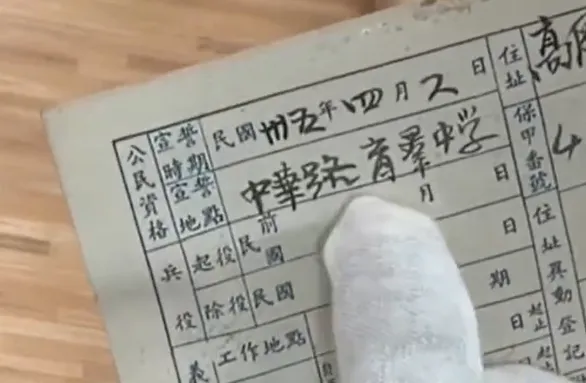 公民資格
宣誓時期
民國卅五年四月 日
宣誓地點
中華路育羣中学
兵役
起役
民前國 月 日
除役
民國 日 期
義
工作地點
日 起止
住址
高
保甲番號
4
住址異動登記